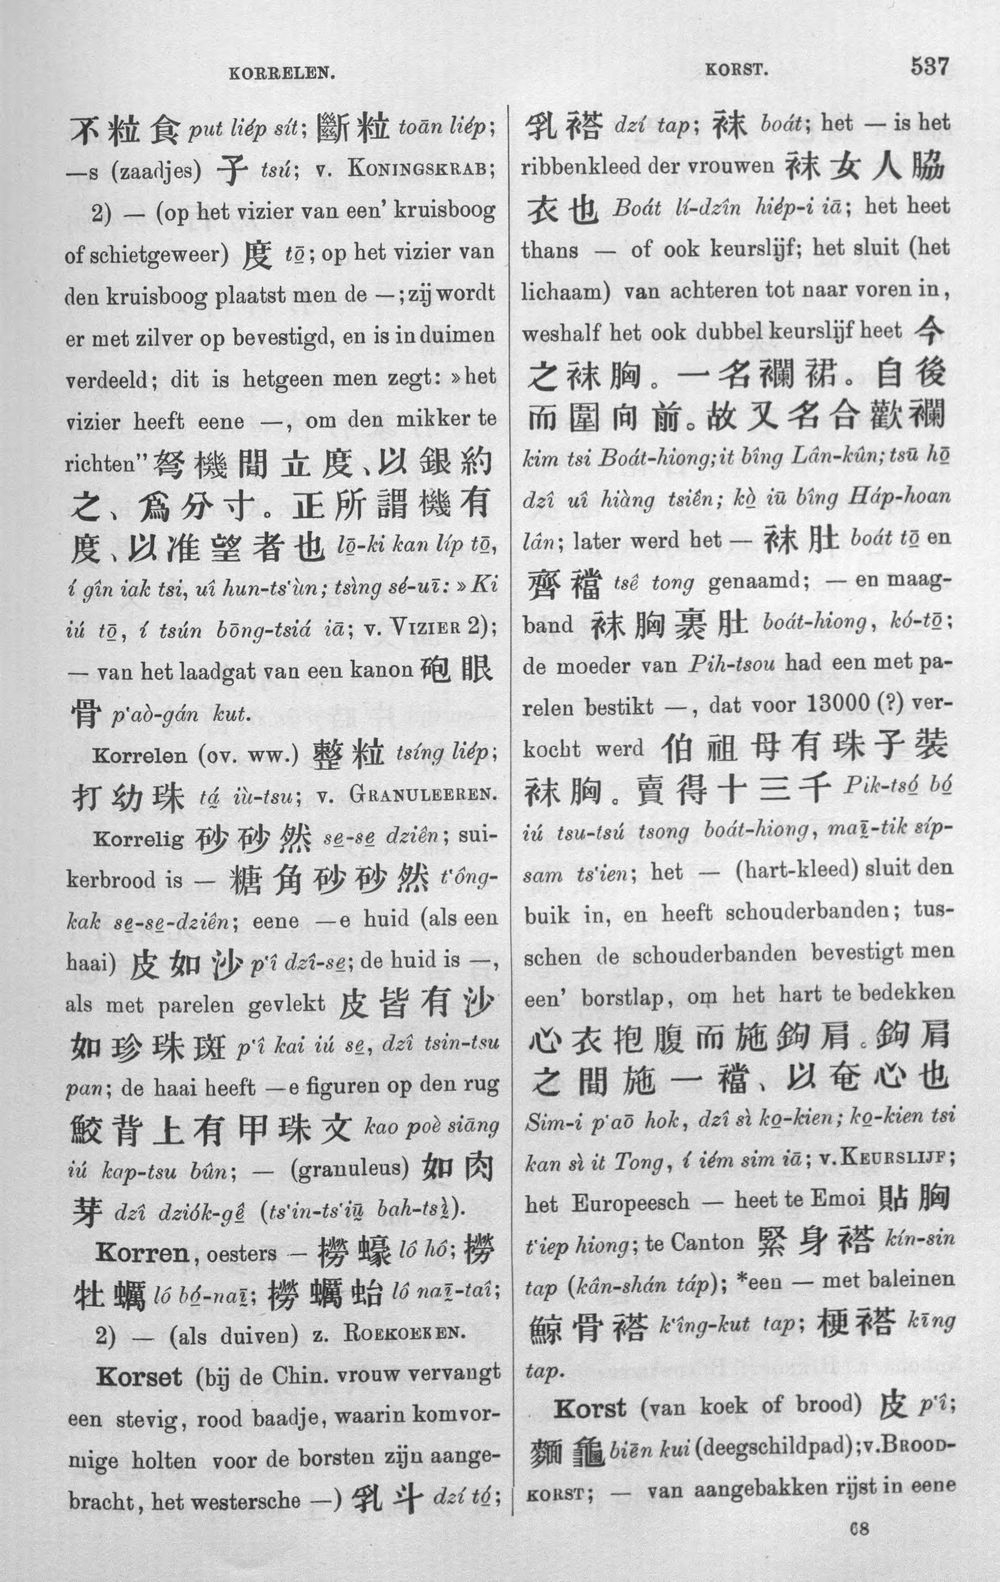 KORRELEN.
KORST. 537
不粒食 put liép sít; 斷粒 toān liép;
—s (zaadjes) 子 tsú; v. KONINGSKRAB;
2) — (op het vizier van een’ kruisboog
of schietgeweer) 度 tō̤; op het vizier van
den kruisboog plaatst men de —; zij wordt
er met zilver op bevestigd, en is in duimen
verdeeld; dit is hetgeen men zegt: »het
vizier heeft eene —, om den mikker te
richten” 弩機間立度、以銀約
之、爲分寸。正所謂機有
度、以准望者也 lō̤-ki kan líp tō̤,
í gîn iak tsi, uî hun-ts‘ùn; tsìng sé-uī: »Ki
iú tō̤, í tsún bōng-tsiá iā; v. VIZIER 2);
— van het laadgat van een kanon 砲眼
骨 p‘aò-gán kut.
Korrelen (ov. ww.) 整粒 tsíng liép;
打幼珠 tá̤ iù-tsu; v. GRANULEEREN.
Korrelig 砂砂然 se̤-se̤ dziên; sui-
kerbrood is — 糖角砂砂然 t‘ông-
kak se̤-se̤-dziên; eene —e huid (als een
haai) 皮如沙 p‘î dzî-se̤; de huid is —,
als met parelen gevlekt 皮皆有沙
如珍珠斑 p‘î kai iú se̤, dzî tsin-tsu
pan; de haai heeft —e figuren op den rug
鮫背上有甲珠文 kao poè siāng
iú kap-tsu bûn; — (granuleus) 如肉
芽 dzî dziók-gê̤ (ts‘in-ts‘iṳ̄ bah-tsí̤).
Korren, oesters — 撈蠔 lô hô; 撈
牡蠣 ló bó̤-naī̤; 撈蠣蛤 lô naī̤-taî;
2) — (als duiven) z. ROEKOEKEN.
Korset (bij de Chin. vrouw vervangt
een stevig, rood baadje, waarin komvor-
mige holten voor de borsten zijn aange-
bracht, het westersche —) 乳斗 dzí tó̤;
乳褡 dzí tap; 袜 boát; het — is het
ribbenkleed der vrouwen 袜女人脇
衣也 Boát lí-dzîn hiép-i iā; het heet
thans — of ook keurslijf; het sluit (het
lichaam) van achteren tot naar voren in,
weshalf het ook dubbel keurslijf heet 今
之袜胸。一名襴裙。自後
而圍向前。故又名合歡襴
kim tsi Boát-hiong; it bîng Lân-kûn; tsū hō̤
dzî uî hiàng tsiên; kò̤ iū bîng Háp-hoan
lân; later werd het — 袜肚 boát tō̤ en
齊襠 tsê tong genaamd; — en maag-
band 袜胸裹肚 boát-hiong, kó-tō̤;
de moeder van Pih-tsou had een met pa-
relen bestikt —, dat voor 13000 (?) ver-
kocht werd 伯祖母有珠子裝
袜胸。賣得十三千 Pik-tsó̤ bó̤
iú tsu-tsú tsong boát-hiong, maī̤-tik síp-
sam ts‘ien; het — (hart-kleed) sluit den
buik in, en heeft schouderbanden; tus-
schen de schouderbanden bevestigt men
een’ borstlap, om het hart te bedekken
心衣抱腹而施鉤肩。鉤肩
之間施一襠、以奄心也
Sim-i p‘aō hok, dzî sì ko̤-kien; ko̤-kien tsi
kan sì it Tong, í iém sim iā; v. KEURSLIJF;
het Europeesch — heet te Emoi 貼胸
t‘iep hiong; te Canton 緊身褡 kín-sin
tap (kân-shán táp); *een — met baleinen
鯨骨褡 k‘îng-kut tap; 梗褡 kīng
tap.
Korst (van koek of brood) 皮 p‘î;
麵龜 biēn kui (deegschildpad); v. BROOD-
KORST; — van aangebakken rijst in eene
68